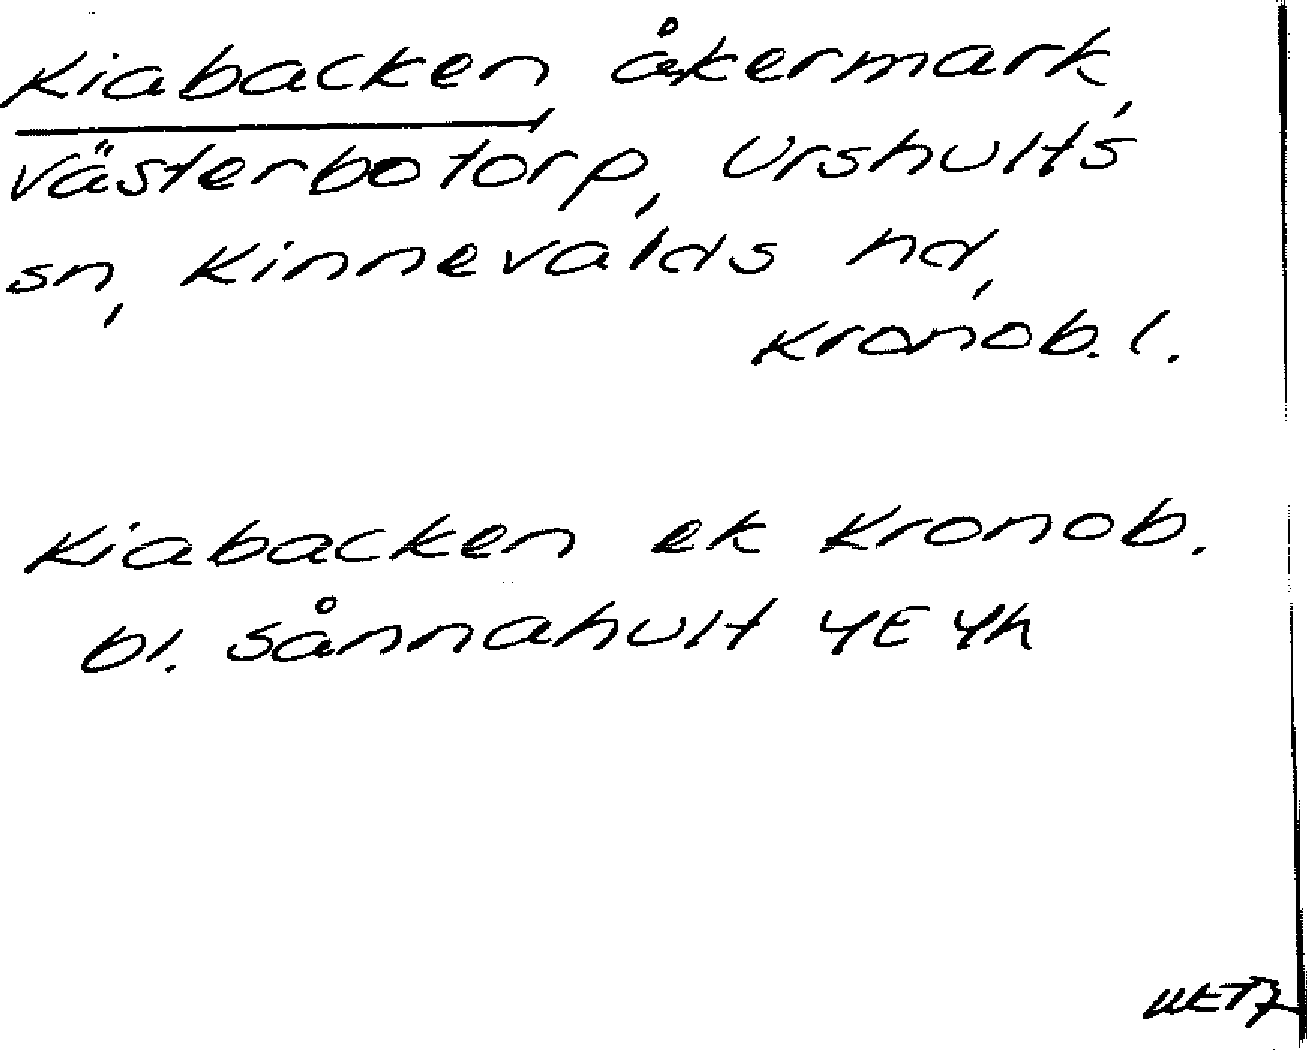 Kiabacken, åkermark,
Västerbotorp, Urshults
sn, Kinnevalds hd,
Kronob. l.
Kiabacken ek Kronob.
bl. Sånnahult 4E 4h